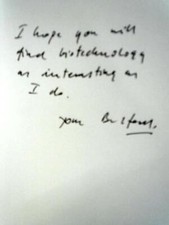 I hope you will
find biotechnology
as interesting as
I do.
Your